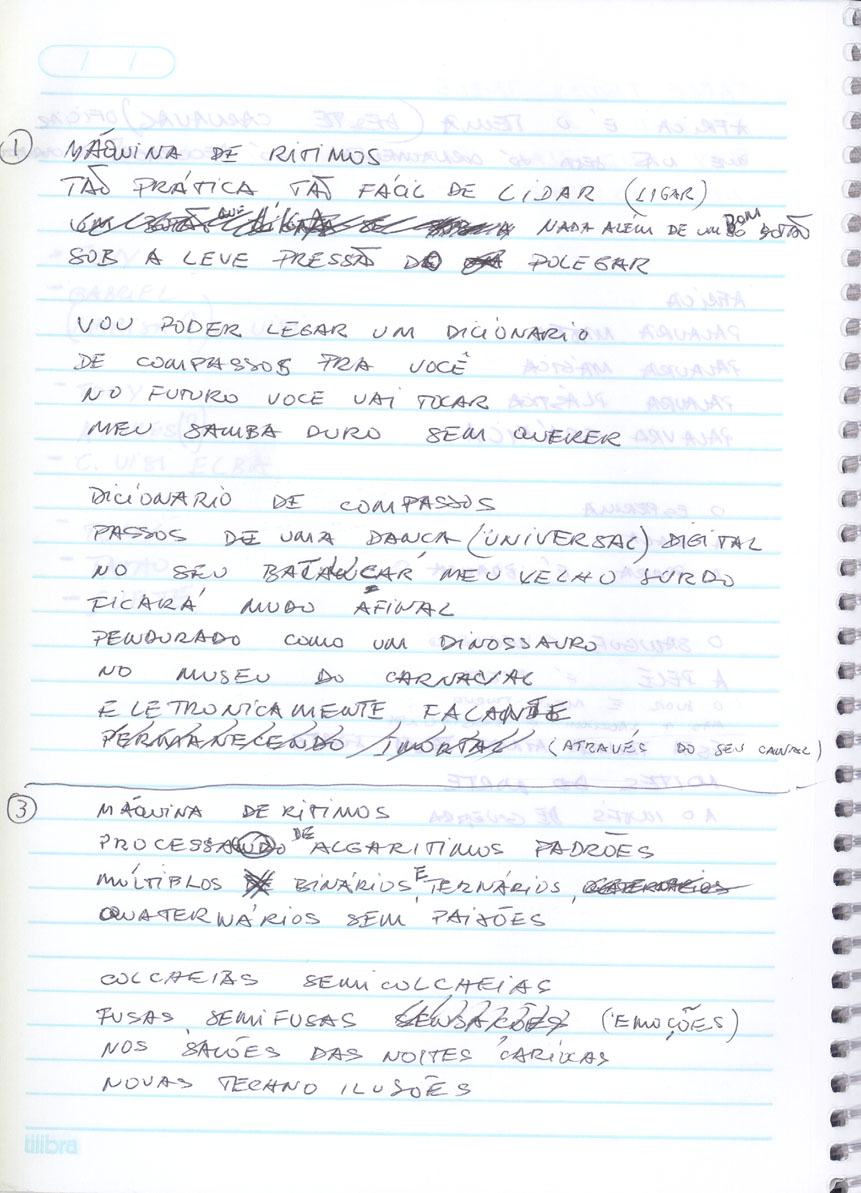 1 MÁQUINA DE RITIMOS
TÃO PRÁTICA TÃO FÁCIL DE LIDAR (LIGAR)
NADA ALÉM DE UM BOM BOTÃO
SOB A LEVE PRESSÃO DO POLEGAR
VOU PODER LEGAR UM DICIONARIO
DE COMPASSOS PRA VOCÊ
NO FUTURO VOCE VAI TOCAR
MEU SAMBA DURO SEM QUERER
DICIONARIO DE COMPASSOS
PASSOS DE UMA DANCA (UNIVERSAL) DIGITAL
NO SEU BALANCAR MEU VELHO SURDO
FICARÁ MUDO AFINAL
PENDURADO COMO UM DINOSSAURO
NO MUSEU DO CARNAVAL
ELETRONICAMENTE FALANTE
PERMANECENDO IMORTAL (ATRAVÉS DO SEU CANAL)
3 MÁQUINA DE RITIMOS
PROCESSANDO DE ALGARITIMOS PADRÕES
MÚLTIPLOS BINÁRIOS E TERNÁRIOS, QUATERNÁRIOS
QUATERNÁRIOS SEM PAIXÕES
COLCHEIAS SEMICOLCHEIAS
FUSAS, SEMIFUSAS SENSAÇÕES (EMOÇÕES)
NOS SALÕES DAS NOITES CARIOCAS
NOVAS TECHNO ILUSÕES
tilibra